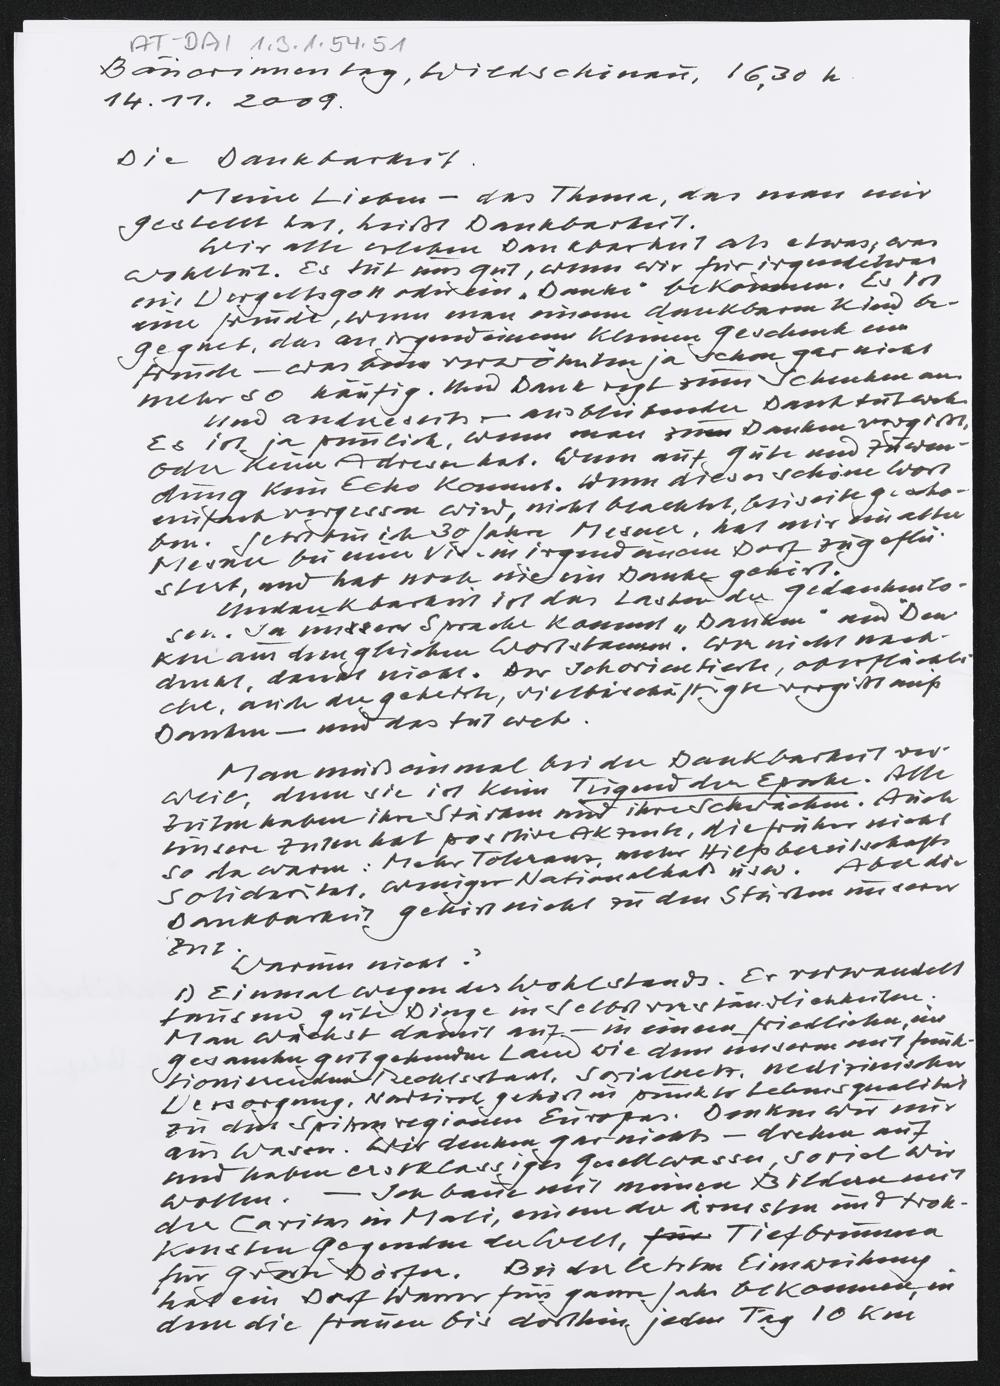 AT-DAI 1.3.1.54.51
Bäuerinnentag, Wildschönau, 16,30 h
14.11. 2009.
Die Dankbarkeit.
Meine Lieben – das Thema, das man mir
gestellt hat, heißt Dankbarkeit.
Wir alle erleben Dankbarkeit als etwas, was
wohltut. Es tut uns gut, wenn wir für irgendetwas
ein Vergeltsgott oder ein „Danke" bekommen. Es ist
eine Freude, wenn man einem dankbaren Kind be-
gegnet, das an irgendeinem kleinen Geschenk eine
Freude – was beim verwöhnten ja schon gar nicht
mehr so häufig. Und Dank regt zum Schenken an.
Und andrerseits – ausbleibender Dank tut weh.
Es ist ja peinlich, wenn man zum Danken vergißt,
oder keine Adresse hat. Wenn auf Güte und Zuwen-
dung kein Echo kommt. Wenn dieses schöne Wort
einfach vergessen wird, nicht beachtet, beiseite gescho-
ben. Jetzt bin ich 30 Jahre Mesner, hat mir ein alter
Mesner bei einer Vis. in irgendeinem Dorf zugeflü-
stert, und hab noch nie ein Danke gehört.
Undankbarkeit ist das Laster der Gedankenlo-
sen. In unserer Sprache kommt „Danken" und "Den
ken aus dem gleichen Wortstamm. Wer nicht nach-
denkt, dankt nicht. Der Ichorientierte, oberflächli
che, auch der gehetzte, vielbeschäftigte vergißt aufs
Danken – und das tut weh.
Man muß einmal bei der Dankbarkeit ver-
weilen, denn sie ist keine Tugend der Epoche. Alle
Zeiten haben ihre Stärken und ihre Schwächen. Auch
unsere Zeiten hat positive Akzente, die früher nicht
so da waren: Mehr Toleranz, mehr Hilfsbereitschaft
Solidarität, weniger Nationalhaß usw. Aber die
Dankbarkeit gehört nicht zu den Stärken unserer
Zeit.
Warum nicht?
1) Einmal wegen des Wohlstands. Er verwandelt
tausend gute Dinge in Selbstverständlichkeiten.
Man wächst damit auf – in einem friedlichen, im
gesamten gutgehenden Land wie dem unseren mit funk-
tionierendem Rechtsstaat, Sozialnetz, medizinischer
Versorgung. Nordtirol gehört in punkto Lebensqualität
zu den Spitzenregionen Europas. Denken wir nur
ans Wasser. Wir denken gar nichts – drehen auf
und haben erstklassiges Quellwasser, soviel wir
wollen. – Ich baue mit meinen Bildern mit
der Caritas in Mali, einem der ärmsten und trok-
kensten Gegenden der Welt, für Tiefbrunnen
für Dörfer. Bei der letzten Einweihung
hat ein Dorf Wasser fürs ganze Jahr bekommen, in
dem die Frauen bis dorthin jeden Tag 10 km